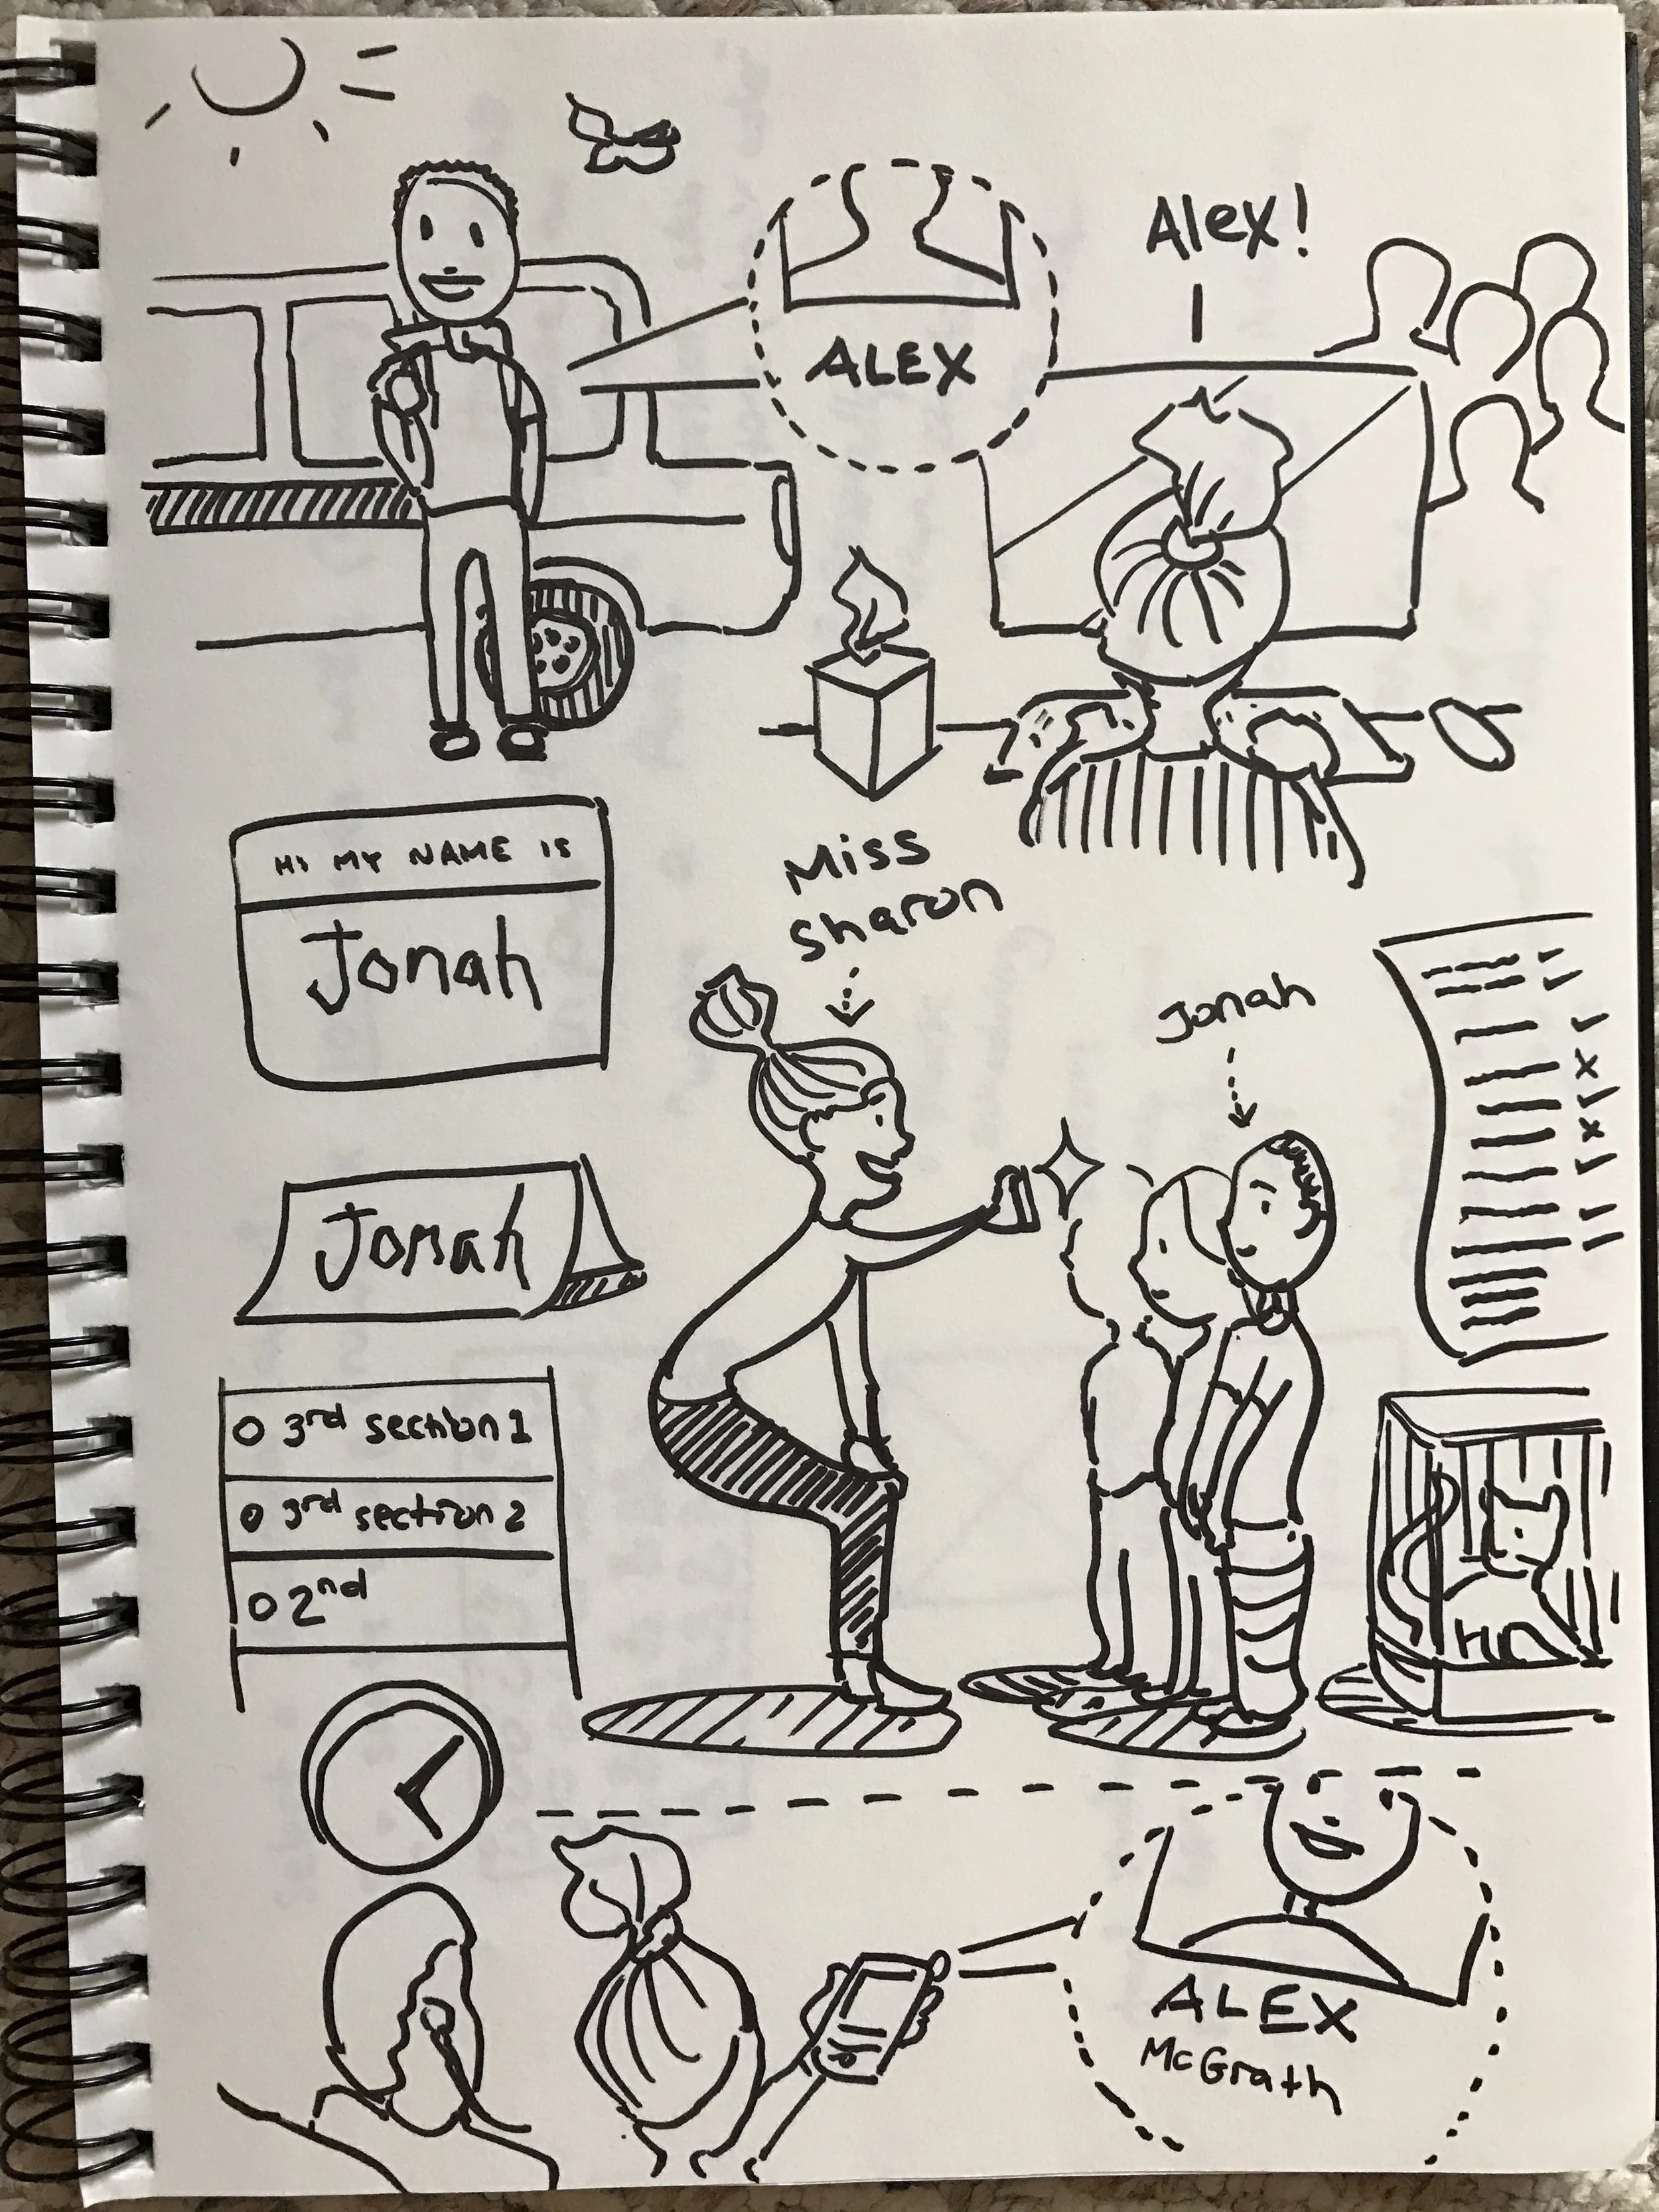 ALEX
Alex!
HI MY NAME IS
Jonah
Miss
Sharon
Jonah
Jonah
3rd section 1
3rd section 2
2nd
ALEX
McGrath